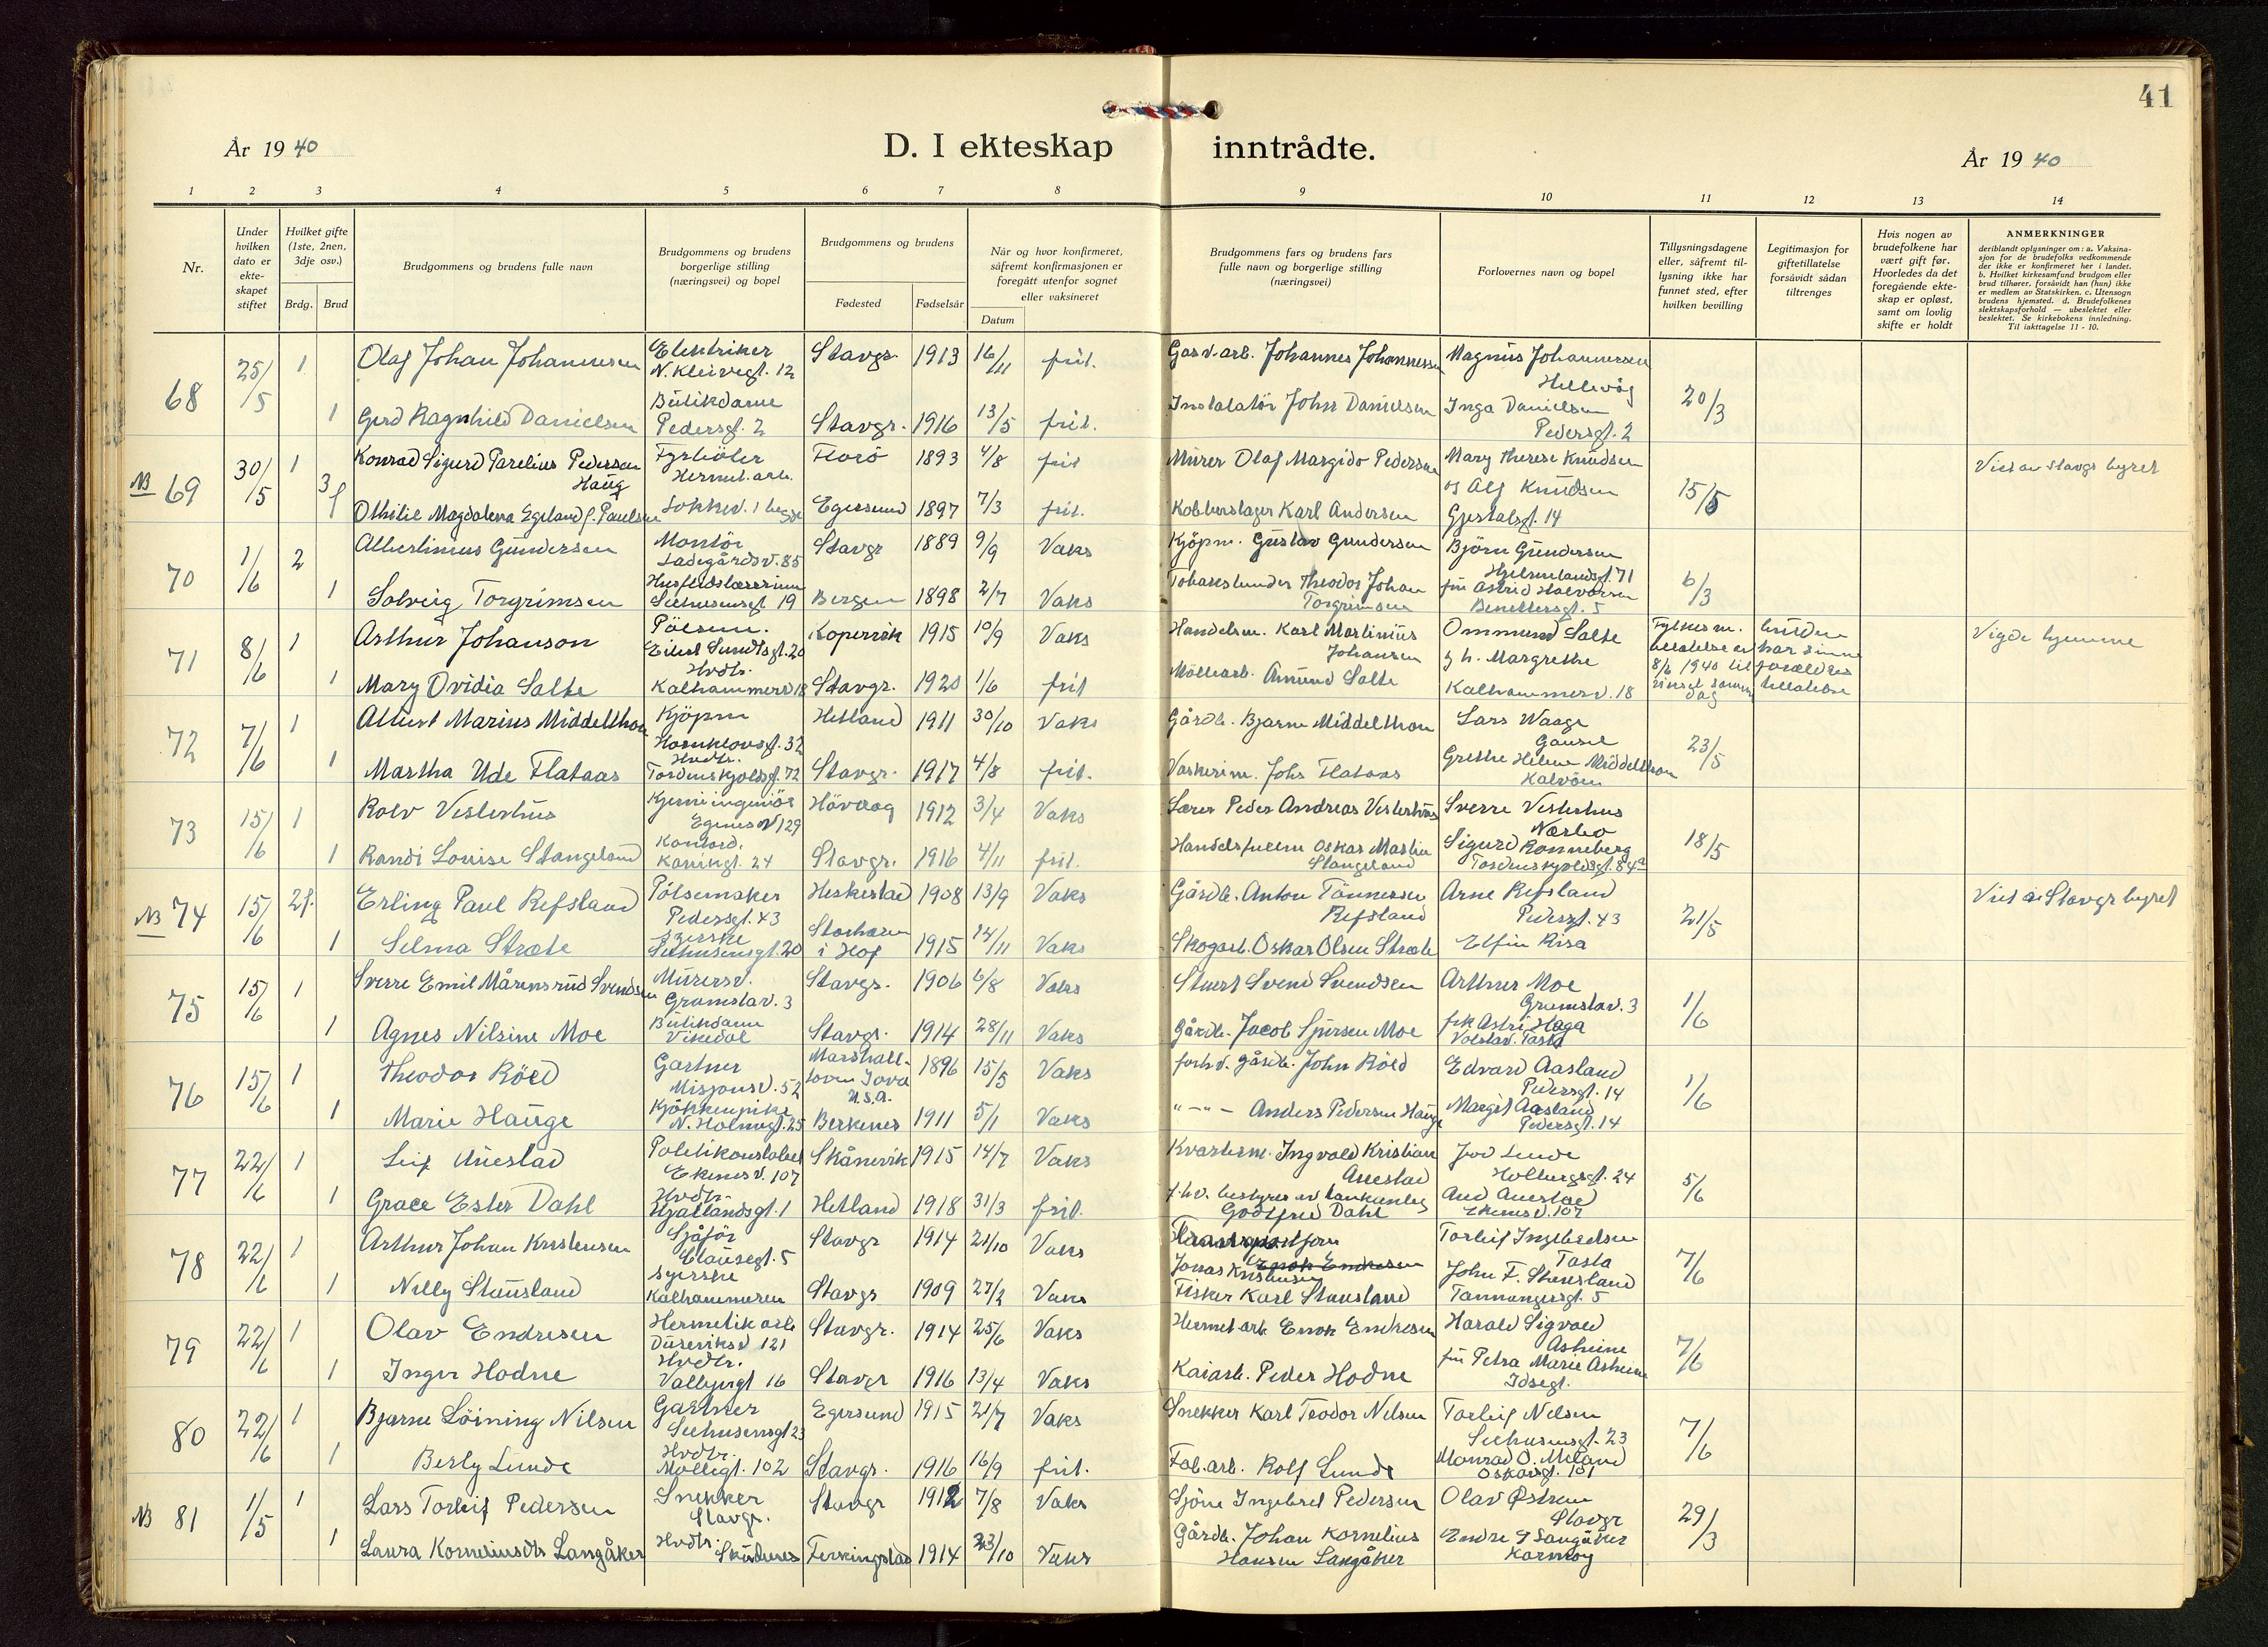 41
År 1940
D. I ekteskap inntrådte.
År 1940
1 2 3 4 5 6 7 8 9 10 11 12 13 14
Nr.
Under hvilken dato er ekteskapet stiftet
Hvilket gifte (1ste, 2nen, 3dje osv.)
Brdg. Brud
Brudgommens og brudens fulle navn
Brudgommens og brudens borgerlige stilling (næringsvei) og bopel
Brudgommens og brudens
Fødested Fødselsår
Når og hvor konfirmeret, såfremt konfirmasjonen er foregått utenfor sognet eller vaksineret
Datum
Brudgommens fars og brudens fars fulle navn og borgerlige stilling (næringsvei)
Forlovernes navn og bopel
Tillysningsdagene eller, såfremt tillysning ikke har funnet sted, efter hvilken bevilling
Legitimasjon for giftetillatelse forsåvidt sådan tiltrenges
Hvis nogen av brudefolkene har vært gift før. Hvorledes da det foregående ekteskap er opløst, samt om lovlig skifte er holdt
ANMERKNINGER
deriblandt oplysninger om: a. Vaksinasjon for de brudefolks vedkommende der ikke er konfirmeret her i landet. b. Hvilket kirkesamfund brudgom eller brud tilhører, forsåvidt han (hun) ikke er medlem av Statskirken. c. Utensogn brudens hjemsted. d. Brudefolkenes slektskapsforhold — ubeslektet eller beslektet. Se kirkebokens innledning. Til iakttagelse 11 - 10.
68 25/5 1 Olaf Johan Johannesen Elektriker N. Kleivegt. 12 Stavgr. 1913 16/11 frit. Gasv. arb. Johannes Johannessen Magnus Johannessen Hellevåg 20/3
1 Gerd Ragnhild Danielsen Butikdame Pedersgt. 2 Stavgr. 1916 13/5 frit. Instalatör John Danielsen Inga Danielsen Pedersgt. 2
NB 69 30/5 1 Konrad Sigurd Parelius Pedersen Haug Fyrböter Hermet. arb. Florö 1893 4/8 frit Murer Olaf Margido Pedersen Mary Therese Knudsen og Alf Knudsen 15/5 Viet av Stavgr byret
3 f Othilie Magdalena Egeland f. Paulsen Egersund 1897 7/3 frit. Kobberslager Karl Andersen Gjestalsgt. 14
70 1/6 2 Albertinius Gundersen Montör Ladegårdsv. 85 Stavgr 1889 9/9 Vaks Kjöpm. Gustav Gundersen Björn Gundersen Hjelmelandsgt. 71 6/3
1 Solveig Torgrimsen Seehusensgt 19 Bergen 1898 2/7 Vaks Theodor Johan Torgrimsen fru Astrid Halvorsen Benettersgt. 5
71 8/6 1 Arthur Johanson Eilert Sundtsgt. 20 Kopervik 1915 10/9 Vaks Handelsm. Karl Martinius Johansen Ommund Salte Fylkesm. tillatelse av 8/6 1940 til vielse samme dag bruden har sine foreldres tillatelse Vigde hjemme
1 Mary Ovidia Salte Hvdtr. Kalhammerv 18 Stavgr. 1920 1/6 frit Möllearb. Åmund Salte g h. Margrethe Kalhammerv. 18
72 7/6 1 Albert Marius Middelthon Kjöpm Hornklovsgt. 32 Hetland 1911 30/10 Vaks Gårdb. Bjarne Middelthon Lars Waage Gausel 23/5
1 Martha Ude Flataas Hvdtr. Tordenskjoldsgt. 72 Stavgr. 1917 4/8 frit. Johs Flataas Grethe Helene Middelthon Kalvöen
73 15/6 1 Rolv Vesterhus Kjemiingeniör Egenesv 129 Hövaag 1912 3/4 Vaks Lærer Peder Andreas Vesterhus Sverre Vesterhus Nærbo 18/5
1 Randi Louise Stangeland Kontord. Kannikgt. 24 Stavgr. 1916 4/11 frit. Handelsfullm Oskar Martin Stangeland Sigurd Ronneberg Tordenskjoldsgt. 84a
NB 74 15/6 2f. Erling Paul Refsland Pölsemaker Pedersgt. 43 Heskestad 1908 13/9 Vaks Gårdb. Anton Tönnessen Refsland Arne Refsland Pedersgt. 43 21/5 Viet av Stavgr byret
1 Selma Stræte Syerske Seehusensgt. 20 i Hof 1915 14/11 Vaks Skogarb. Oskar Olsen Stræte Elfin Risa
75 15/6 1 Sverre Emil Mårensrud Svendsen Murersv. Gramstav. 3 Stavgr. 1906 6/8 Vaks Stuert Svend Svendsen Arthur Moe Gramstav. 3 1/6
1 Agnes Nilsine Moe Butikdame Vikedal Stavgr. 1914 28/11 Vaks Gårdb. Jacob Sjursen Moe frk Astri Haga Tasta
76 15/6 1 Theodor Röed Gartner Misjonsv. 52 Marshalltown Iova U.S.A. 1896 15/5 Vaks forhv. gårdb. John Röed Edvard Aasland Pedersgt. 14 1/6
1 Marie Hauge Kjökkenpike N. Holmegt. 25 Berkenes 1911 5/1 Vaks " - " - Anders Pedersen Hauge Margit Aasland Pedersgt. 14
77 22/6 1 Leif Auestad Politikonstabel Ekenesv. 107 Skånevik 1915 14/7 Vaks Kvarterm. Ingvald Kristian Auestad Holbergsgt. 24 5/6
1 Grace Ester Dahl Hvdtr. Hjaltlandsgt. 1 Hetland 1918 31/3 frit. f.h.v. bestyrer av tankanlegg Godtfred Dahl Aud Auestad Ekenesv. 107
78 22/6 1 Arthur Johan Kristensen Sjåför Clausegt. 5 Stavgr 1914 21/10 Vaks Transportform Jonas Kristensen Enok Endresen Torleif Ingebretsen Tasta 7/6
1 Nelly Stausland Syerske Kalhammeren Stavgr 1909 27/2 Vaks Fisker Karl Stausland John F. Stausland Tanangergt. 5
79 22/6 1 Olav Endresen Hermetikarb Duseviksv 121 Stavgr. 1914 25/6 Vaks Hermet arb. Enok Endresen Harald Sigvald Asheim 7/6
1 Inger Hodne Hvdtr. Valbergt 16 Stavgr 1916 13/4 Vaks Kaiarb. Peder Hodne fru Petra Marie Asheim Idsegt.
80 22/6 1 Bjarne Löining Nilsen Gartner Seehusensgt 23 Egersund 1915 21/7 Vaks Snekker Karl Teodor Nilsen Torleif Nilsen Seehusensgt. 23 7/6
1 Berly Lunde Hvdtr. Möllegt. 102 Stavgr. 1916 16/9 frit. Fab. arb. Rolf Lunde Monrad O. Meland Oskarsgt. 101
NB 81 1/5 1 Lars Torleif Pedersen Snekker Stavgr. Stavgr 1912 7/8 Vaks Sjöm Ingebret Pedersen Olav Østrem Stavgr 29/3
1 Laura Korneliusdtr Langåker Hvdtr. Skudenes Ferkingstad 1914 23/10 Vaks Gårdb. Johan Kornelius Hansen Langåker Endre G Langåker Karmøy